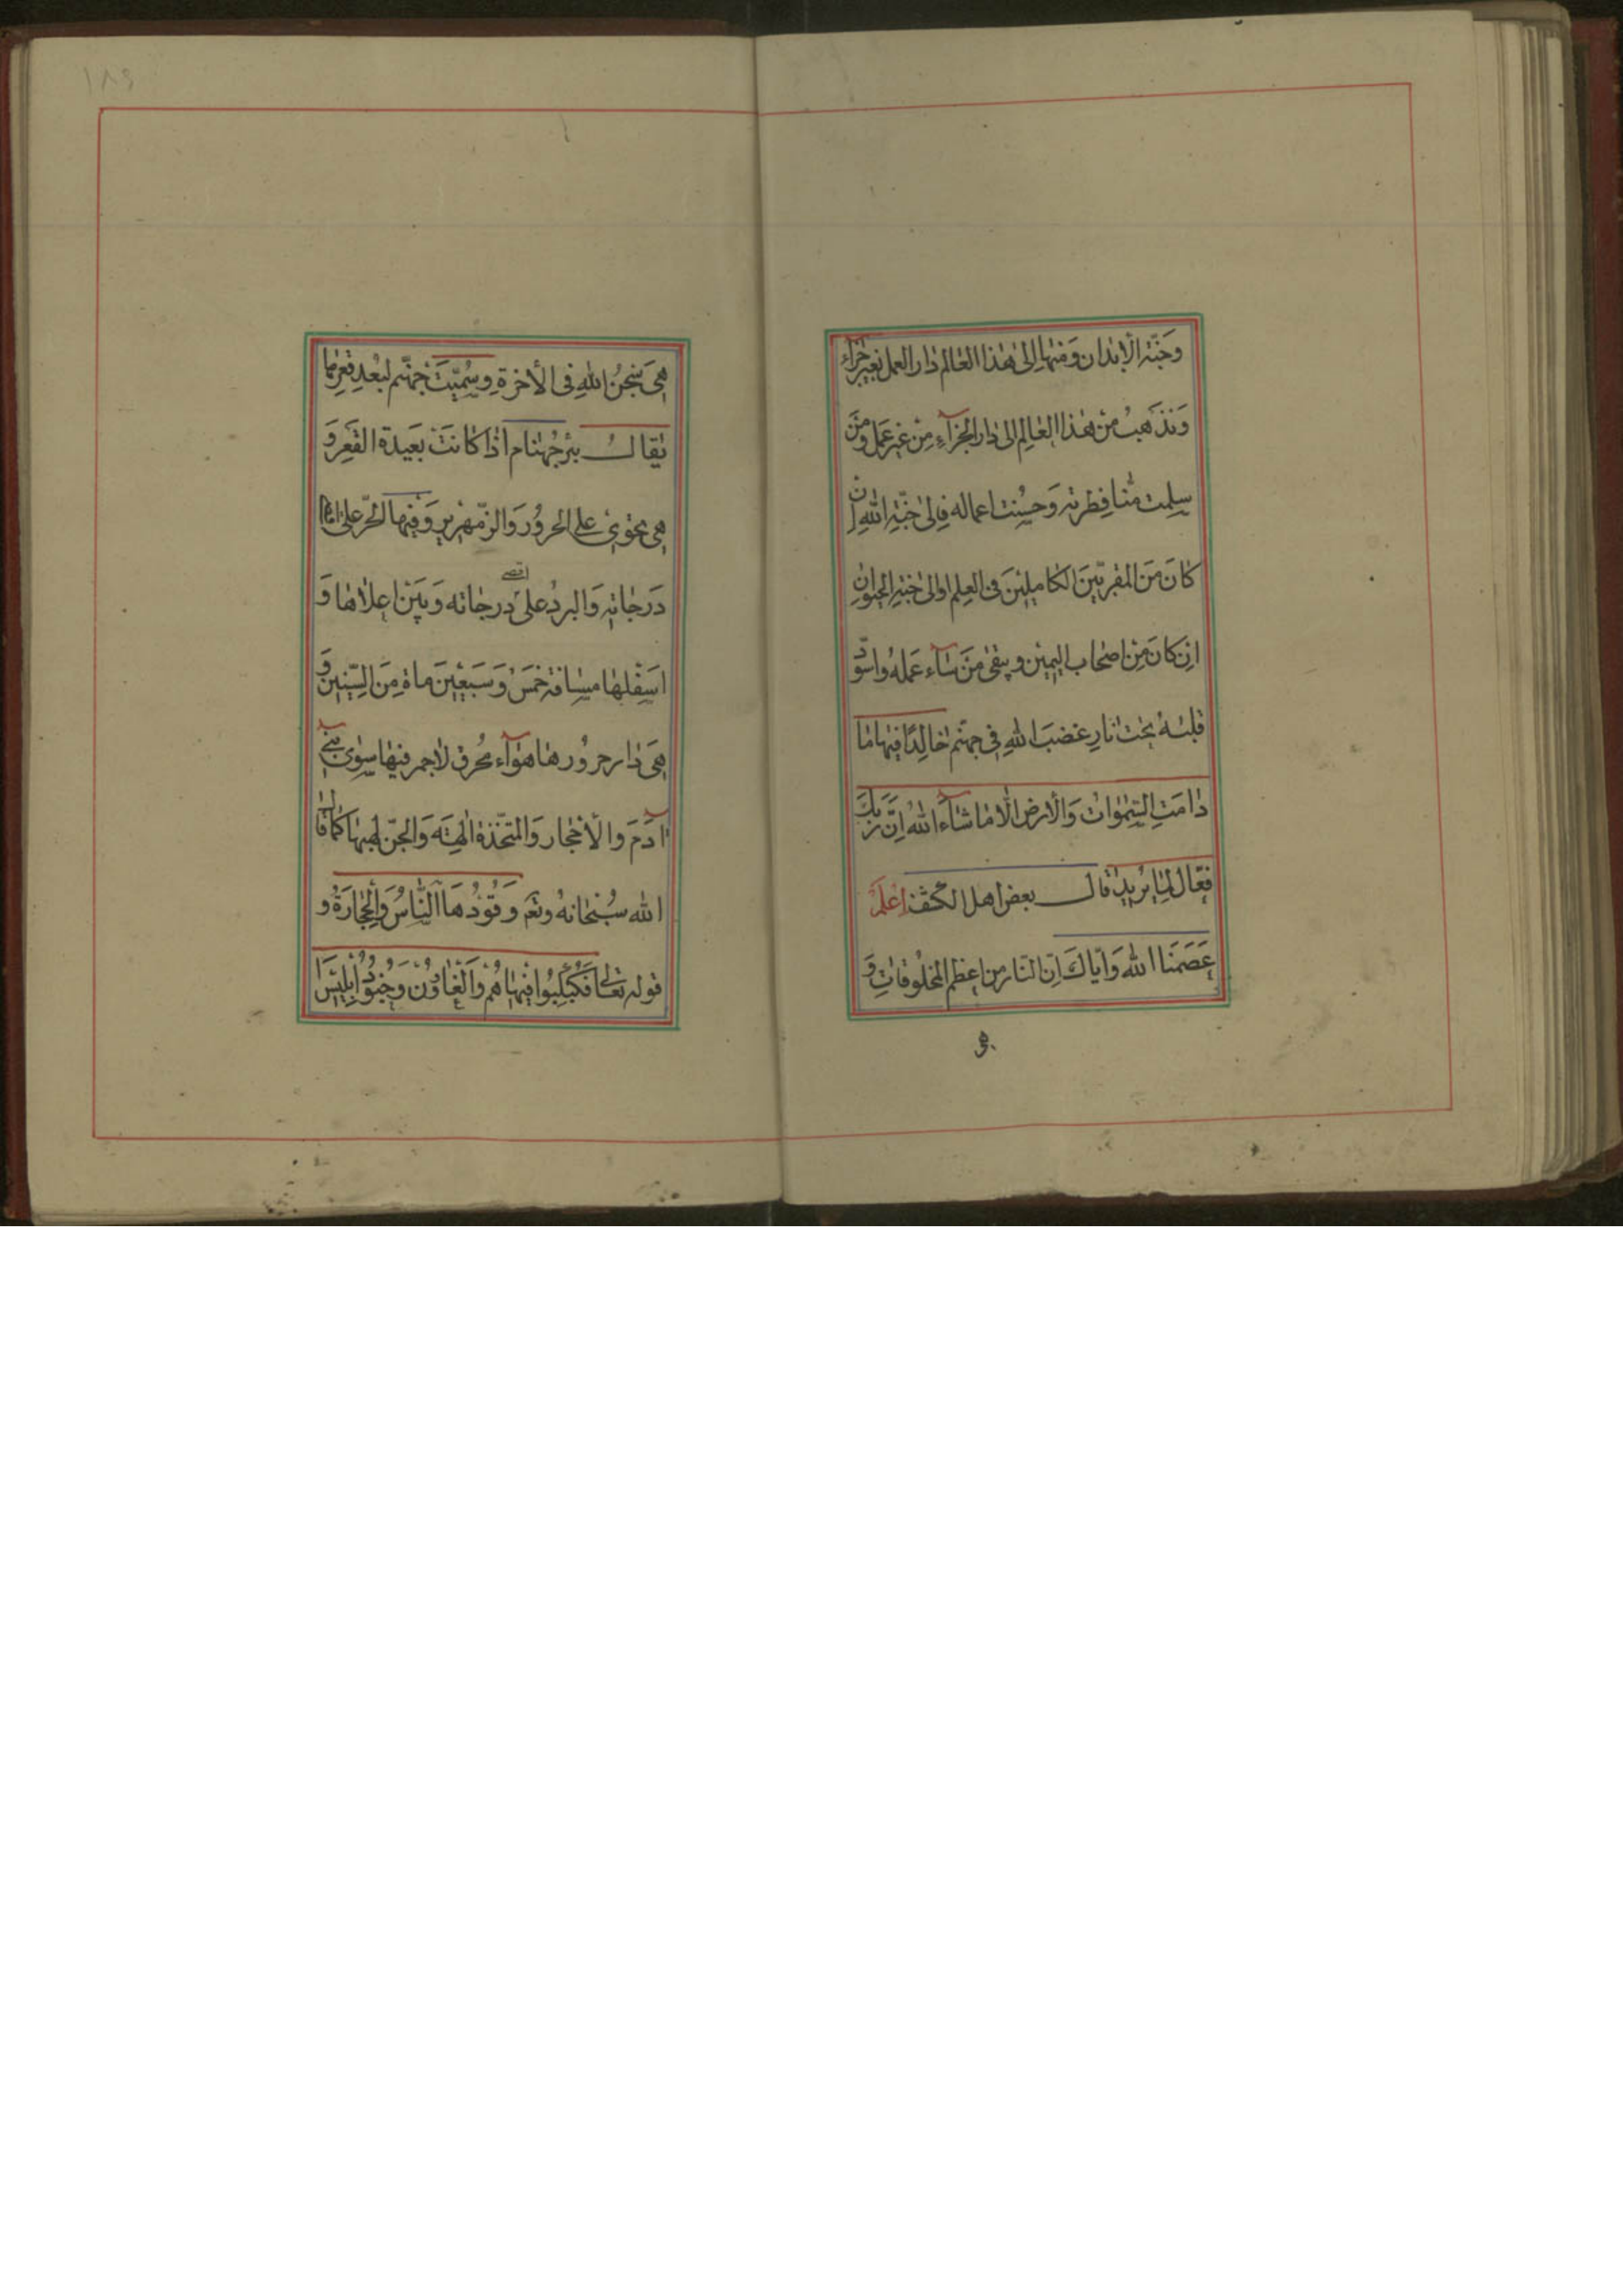 وَجَنّة الأبدان وَمنها إلى هٰذا العٰالم دٰار العمل بغير جزآء
وَنذهبُ من هٰذا العٰالمِ الى دٰار الجزآءِ مِن غير عَمل وَمنَ
سلمت منّا فِطرته وَحسُنت اعماله فإلى جَنّةِ اللهِ ان
كٰانَ مِنَ المقربّينَ الكٰامِلينَ فى العِلم اوالى جَنّةِ الحيوٰانِ
اِن كانَ مِن اصحٰاب اليَمين ويبقىٰ مَنَ سٰآء عَملهُ واسوَدّ
قلبُهُ تحت نٰارِ غضبَ اللهِ فى جهنّم خٰالِدًا فيهٰا مٰا
دٰامَتِ السّمٰوٰات وَالأرض اِلّا مٰا شٰآءَ اللهُ اِنَّ رَبّكَ
فعّال لِمٰا يُريد قال بعض اهل الكشف اِعلَم
عَصَمنَا اللهُ وَاِيّاكَ اِنّ النّار من اعظم المخلُوقٰاتِ وَ
هى
هِىَ سِجنُ اللهِ فى الأخرةِ وسُمّيَتَ جَهنّم لبُعْدِ قعرِهٰا
يُقالُ بئر جُهنٰام اذٰا كٰانَتْ بَعيدة القَعرِ وَ
هِىَ تحوىٖ على الحَرُور وَالزّمهَرير وَفيهٰا الحرّ على اقصى
دَرجٰاته وَالبردُ على اقصى درجٰاته وَبَينَ اعلاٰهٰا وَ
اسَفلهٰا مسٰافة خمَس وَسَبعينَ مٰاة مِنَ السِّنينَ وَ
هِىَ دٰار حرُورهٰا هَوٰآء محُرق لاٰجمر فيهٰا سِوىٰ بَنى
آدَمَ والأحْجٰار وَالمتخّذة اٰلِهَة وَالجنّ لهبهٰا كَمٰا قال
الله سُبْحٰانهُ وتعٰ وَقُودُهَا النّٰاسُ وَالْحِجٰارَةُ و
قوله تعٰالى فَكُبْكِبُوا فيهٰا هُمْ وَالْغٰاوُنَ وَجُنُودُ اِبْليسَ
۱۸۹